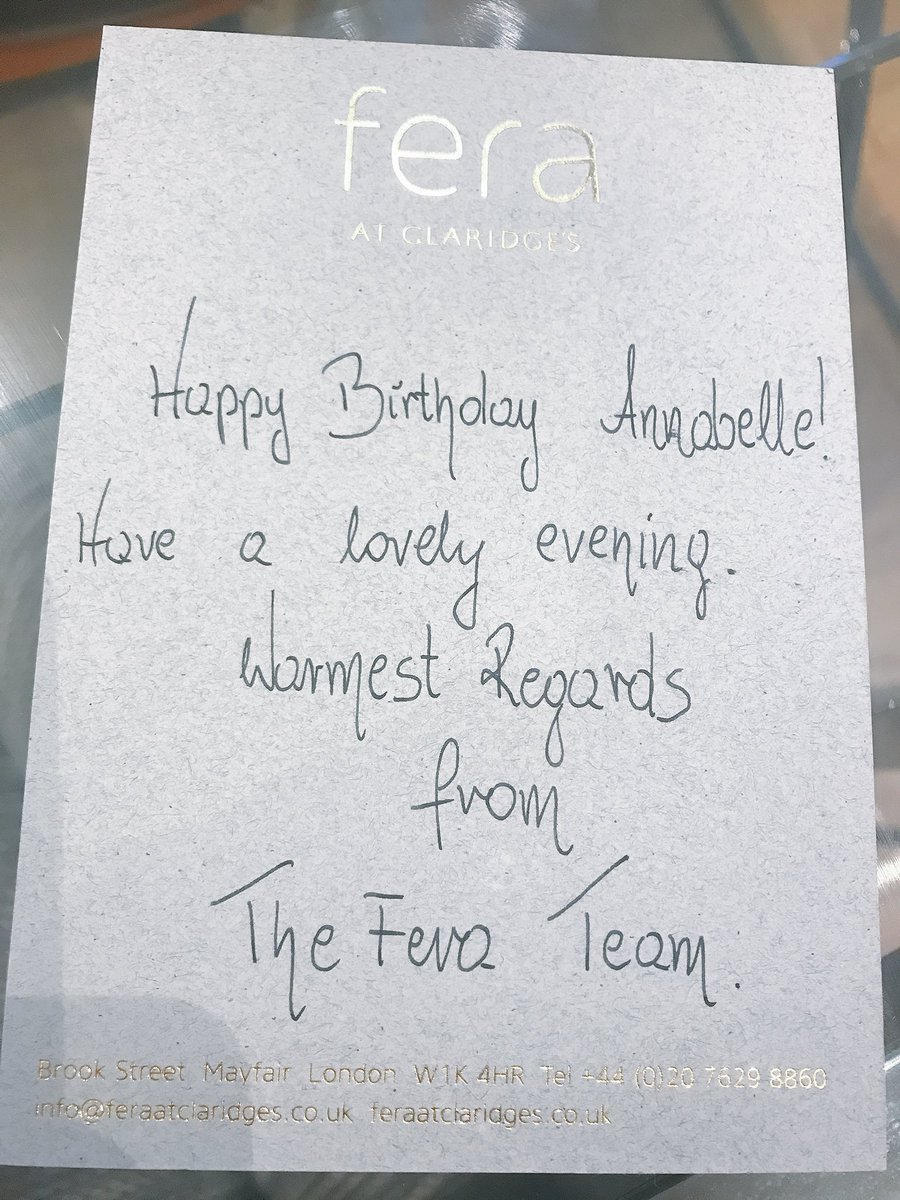 fera
AT CLARIDGE'S
Happy Birthday Annabelle!
Have a lovely evening.
Warmest Regards
from
The Fera Team.
Brook Street Mayfair London W1K 4HR Tel +44 (0)20 7629 8860
info@feraatclaridges.co.uk feraatclaridges.co.uk